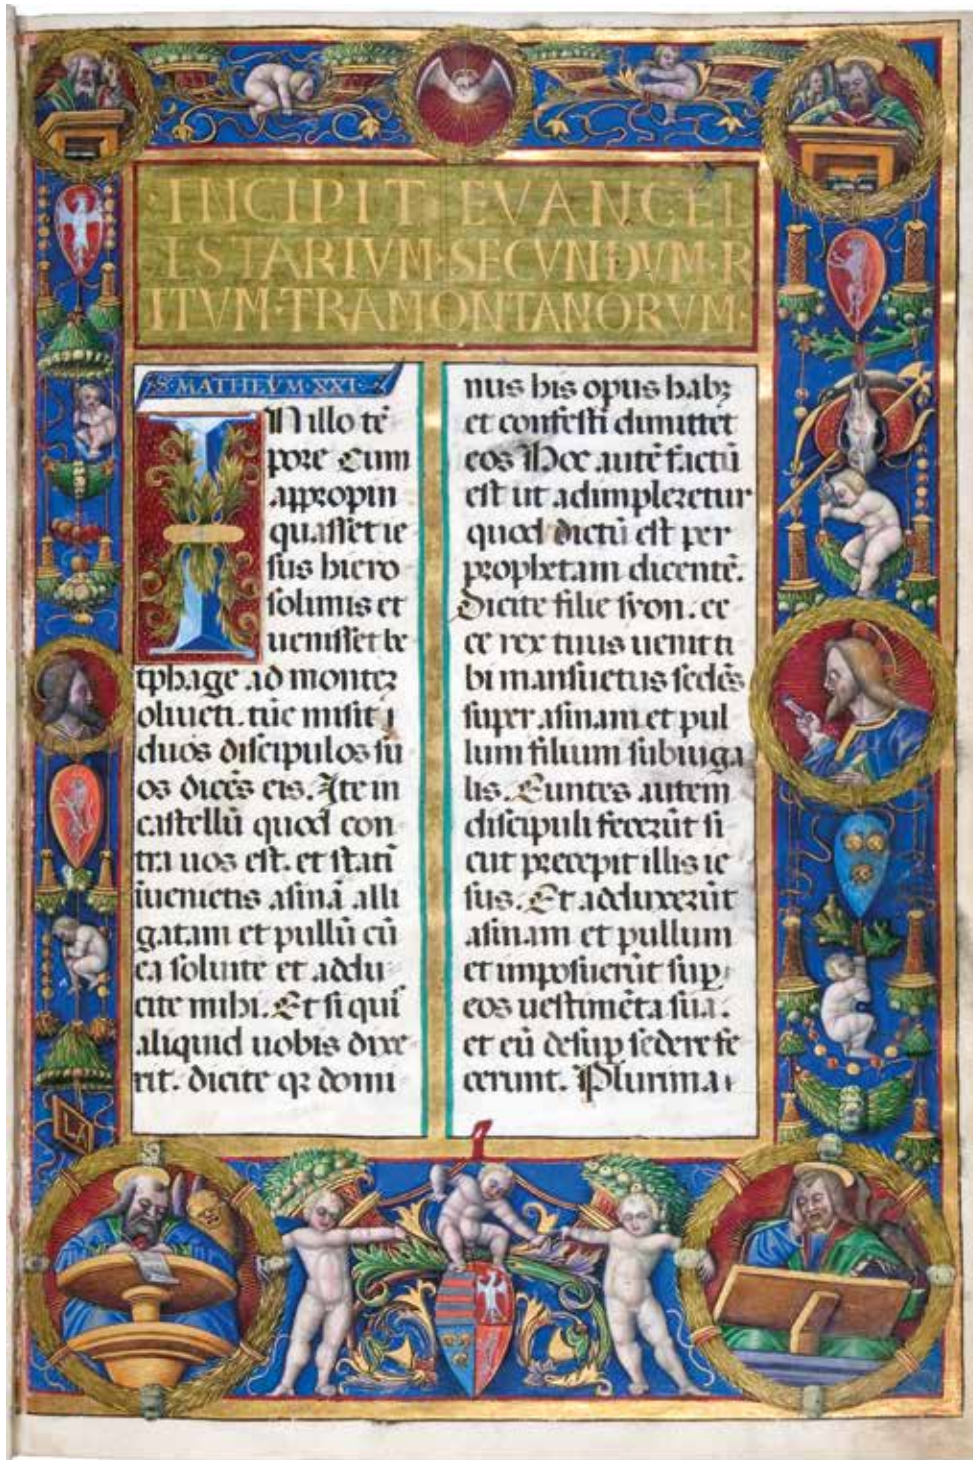 INCIPIT EVANGEL
ISTARIVM·SECVNDVM·R
ITVM·TRAMONTANORVM·
S·MATHEVM·XXI·
IN illo tē
pore Cum
appropin
quasset ie
sus hiero
solimis et
uenisset be
tphage ad monteꝫ
oliueti. tūc misit
duos discipulos su
os dicēs eis. Ite in
castellū quod con
tra uos est. et statī
īuenietis asinā alli
gatam et pullū cū
ea soluite et addu
cite mihi. Et si quī
aliquid uobis dixe
rit. dicite qꝫ domi
nus his opus habꝫ
et confestī dimittet
eos Hoc autē factū
est ut adimpleretur
quod dictū est per
prophetam dicentē.
Dicite filie syon. ec
ce rex tuus uenit ti
bi mansuetus sedēs
super asinam et pul
lum filium subiuga
lis. Euntes autem
discipuli fecerūt si
cut precepit illis ie
sus. Et adduxerūt
asinam et pullum
et imposuerūt suꝑ
eos uestimēta sua.
et eū desuꝑ sedere fe
cerunt. Plurima
LA